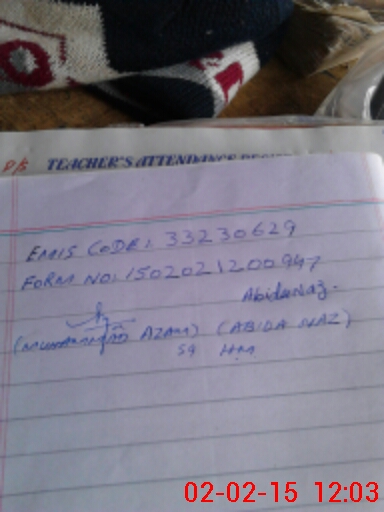 P/S TEACHER'S ATTENDANCE
EMIS CODE: 33230629
FORM NO: 1502021200947
Abida Naz.
(MUHAMMAD AZAM) (ABIDA NAZ)
HM
02-02-15 12:03